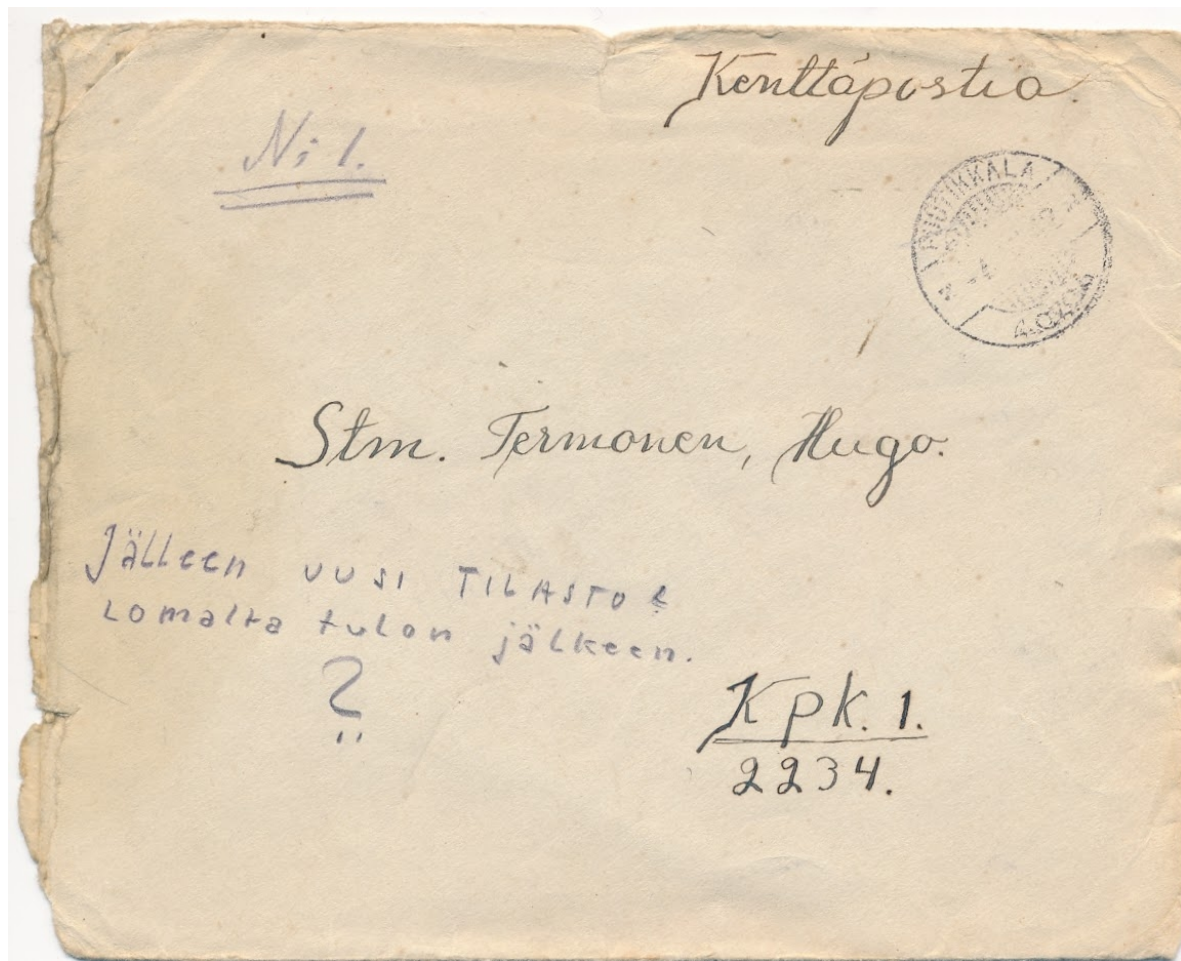 Kenttäpostia.
N:i 1.
Stm. Termonen, Hugo.
Jälleen uusi TILASTO
Lomalta tulon jälkeen.
?
Kpk. 1.
2234.